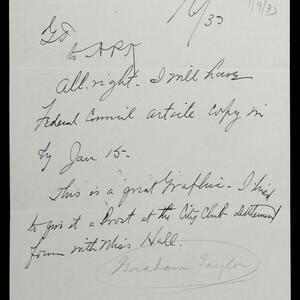 1/9/33
1/6/33
GT
to ARK
All right - I will have
Federal Council article copy in
by Jan 15-
This is a great Graphic - I tried
to give it a boost at the City Club settlement
forum with Miss Hall.
Graham Taylor